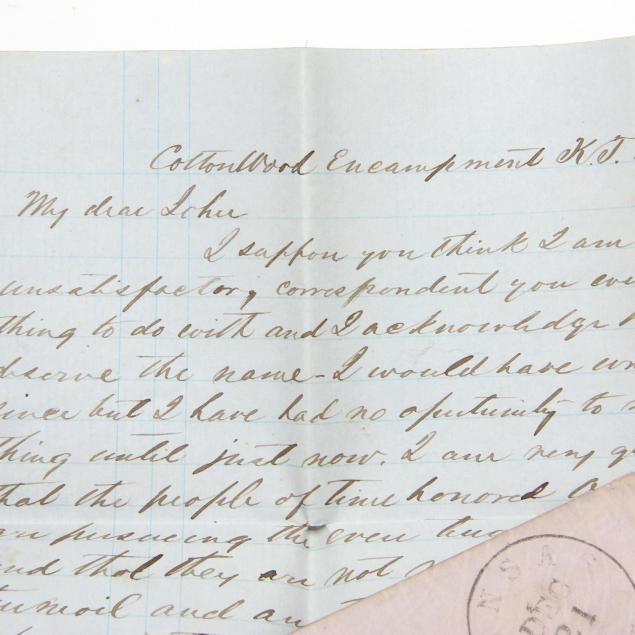 CottonWood Encampment K.T.
My dear John
I suppose you think I am
unsatisfactory correspondent you
thing to do with and I acknowledge
deserve the name - I would have
since but I have had no oportunity to
thing until just now. I am very
that the people of time honored
are pursueing the even
and that they are not
turmoil and
NSAS
DEC
21